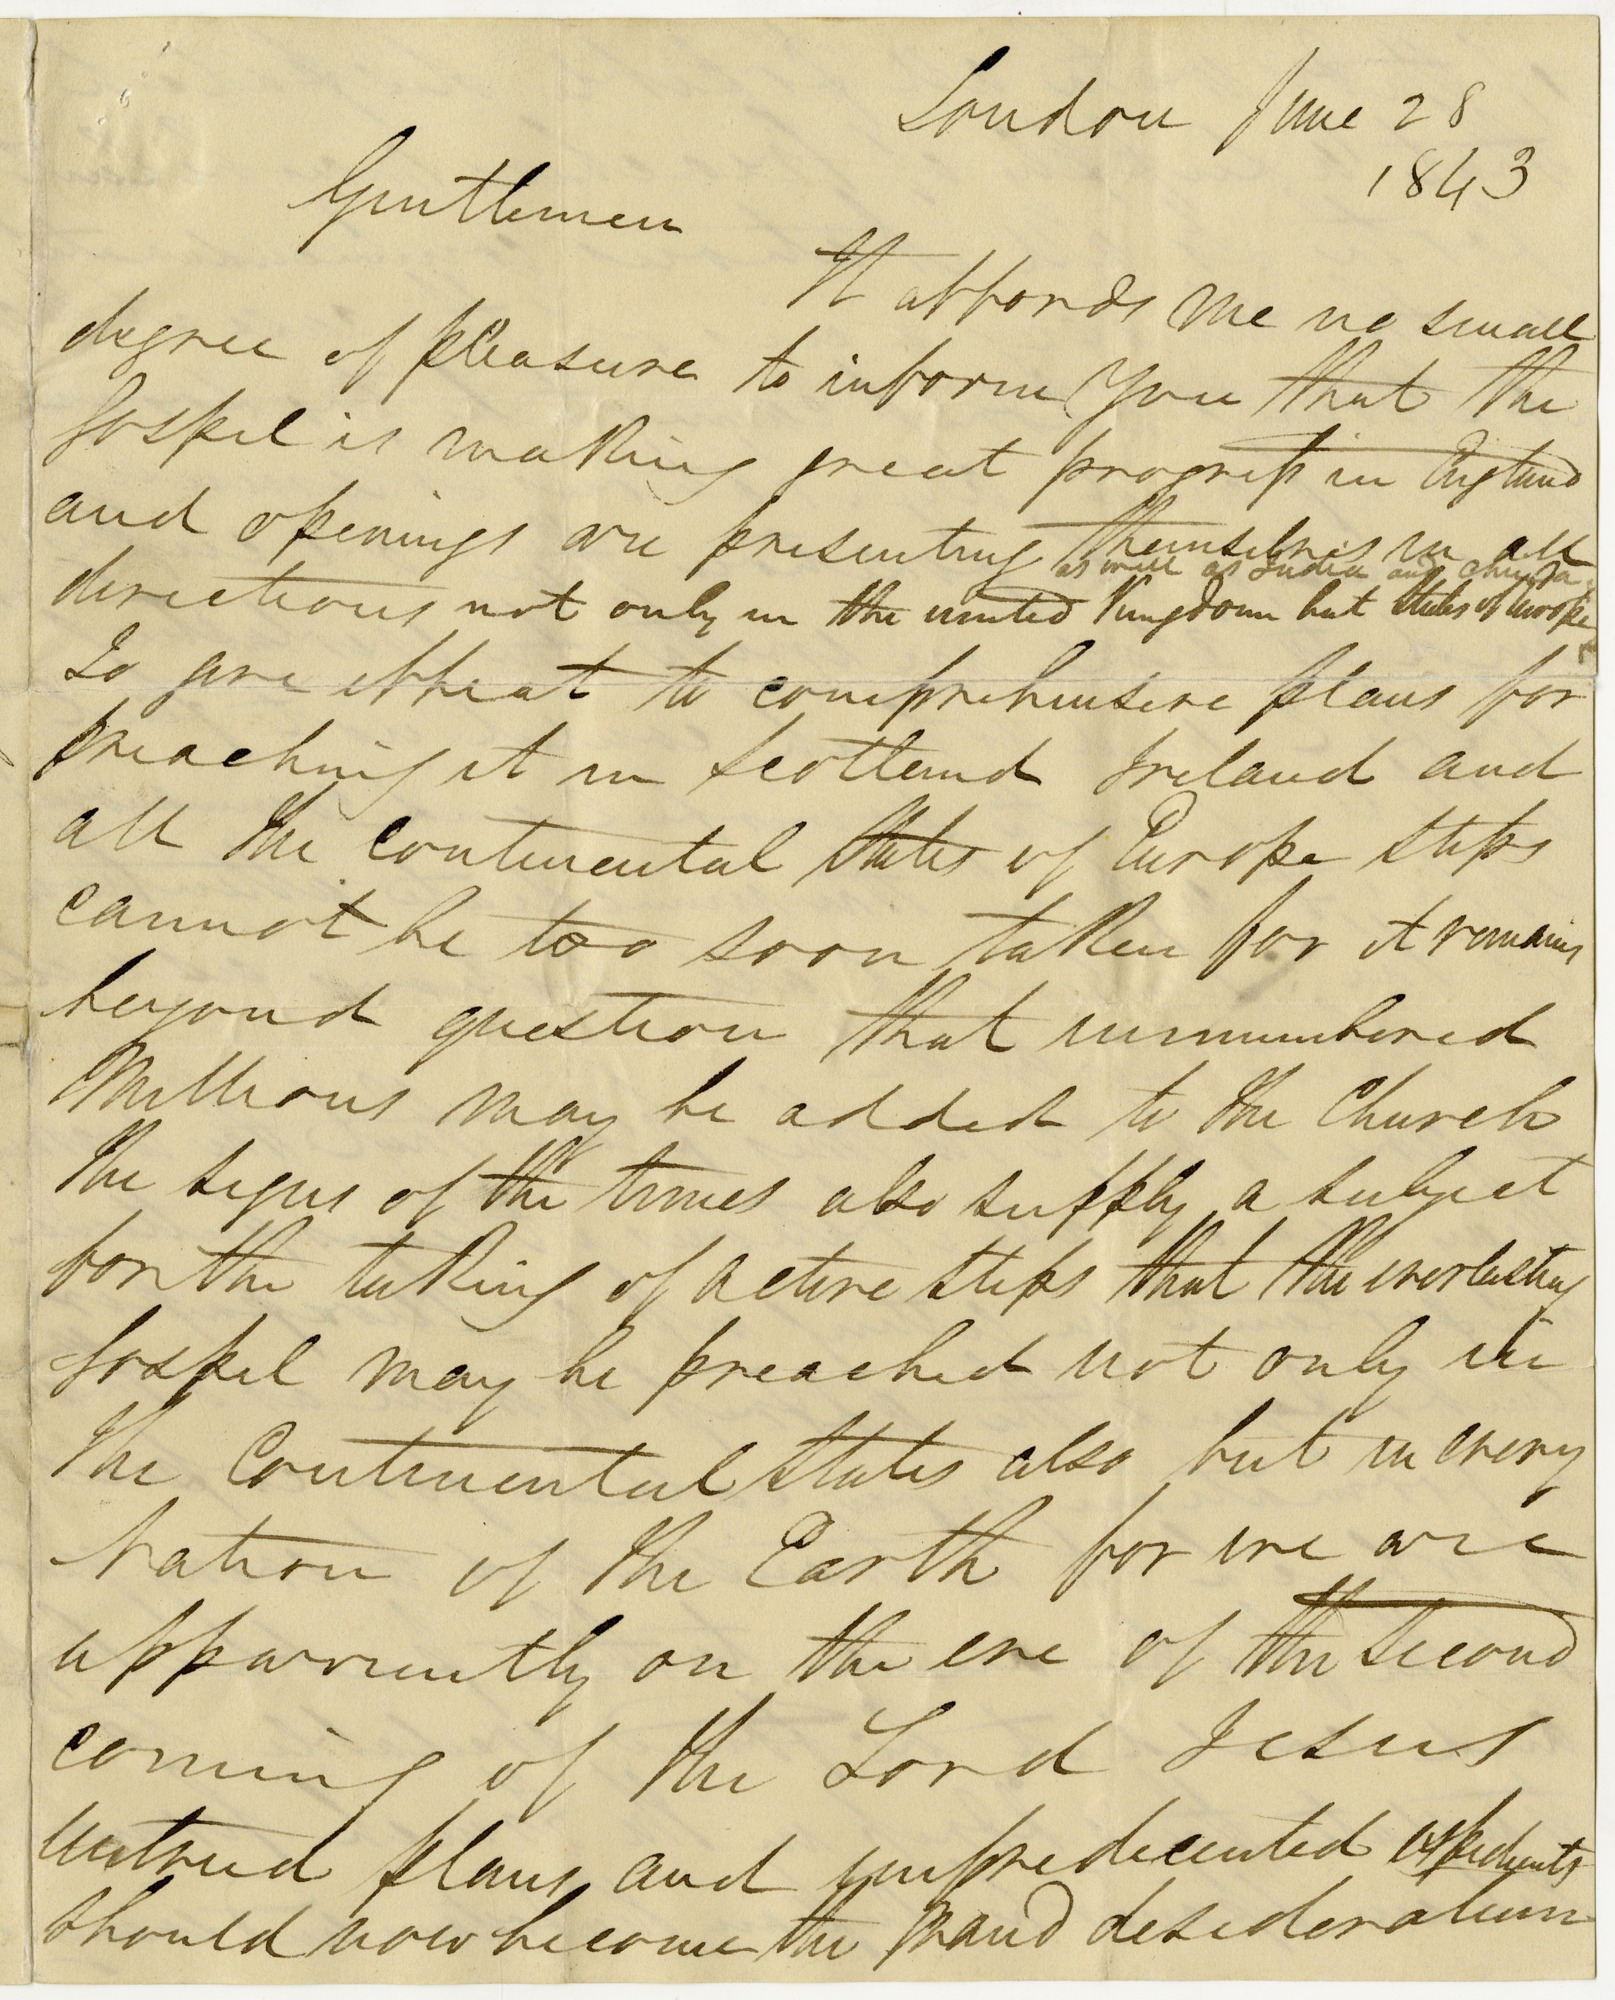 London June 28
1843
Gentlemen
It affords me no small
degree of pleasure to inform you that the
Gospel is making great progress in England
and openings are presenting themselves in all
as well as India and China
directions not only in the united Kingdom but States of Europe
To give effeat to comprehensive plans for
preaching it in Scotland Ireland and
all the continental States of Europe steps
cannot be too soon taken for it remains
beyond question that unnumbered
Millions may be added to the Church
The signs of the times also supply a subject
for the taking of active steps that the everlasting
Gospel may be preached not only in
the Continental States also but in every
Nation of the Earth for we are
apparrently on the eve of the Second
coming of the Lord Jesus
Untried plans and unpredecented expedients
should now become the grand desideratum